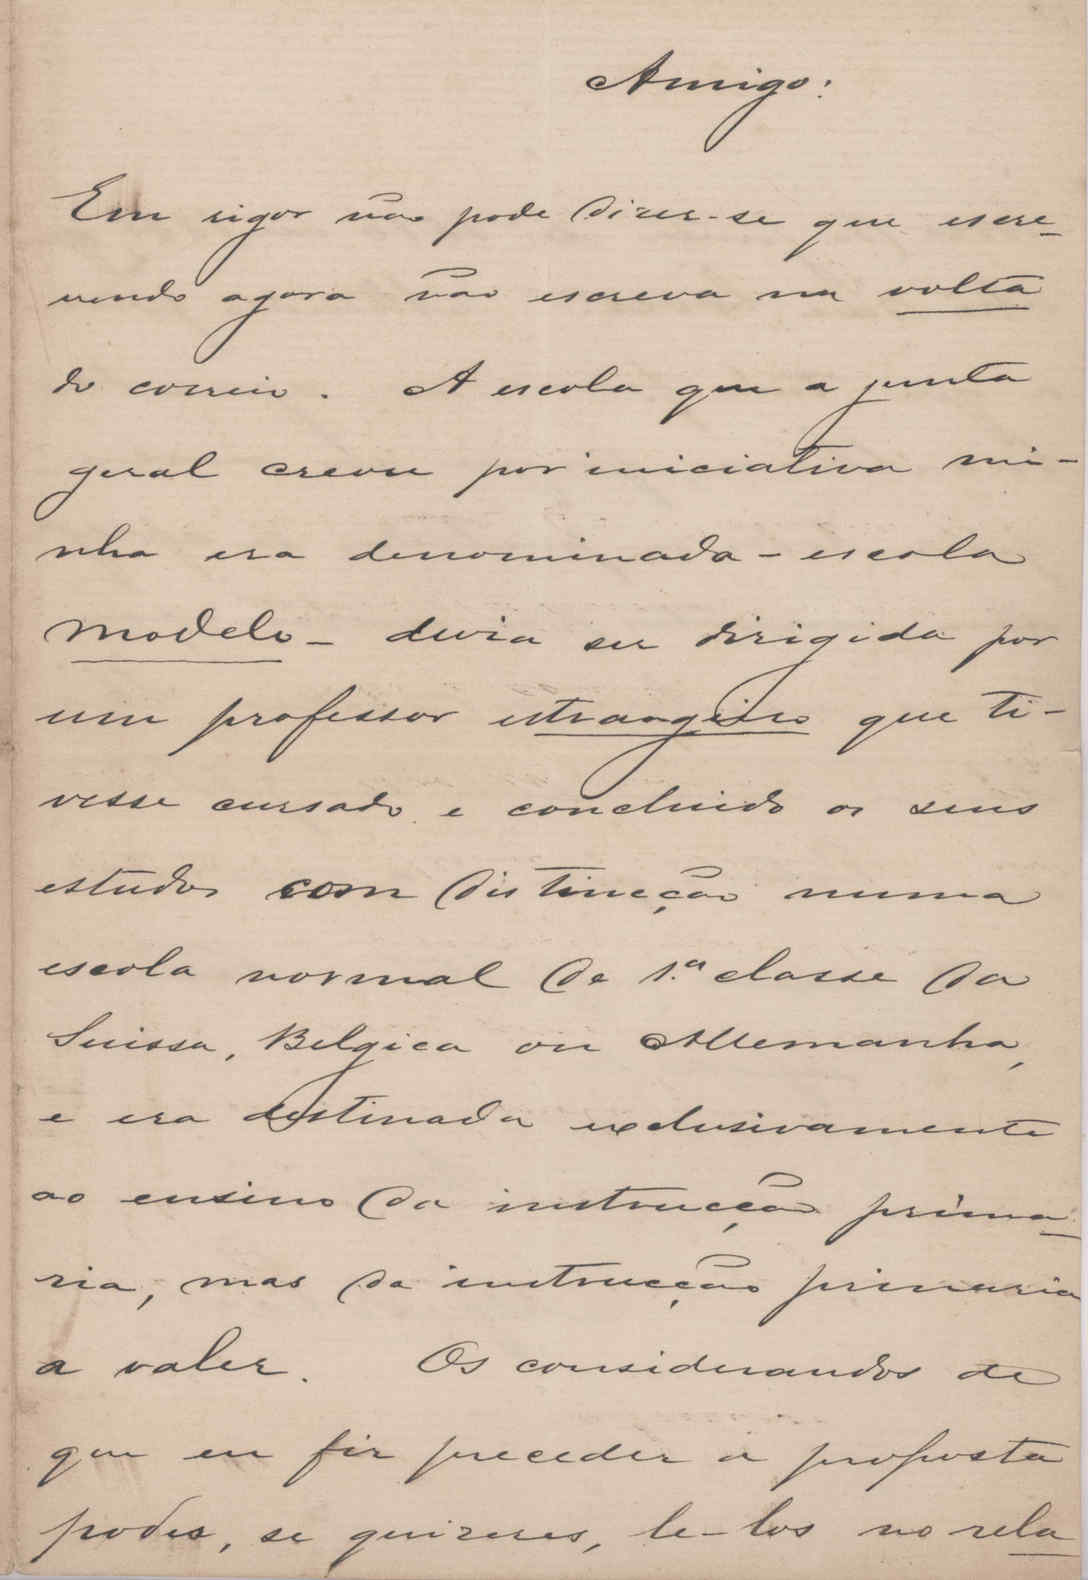 Amigo:
Em rigor não pode dizer-se que escre-
vendo agora não escreva na volta
do correio. A escola que a junta
geral creou por iniciativa mi-
nha era denominada - escola
modelo - devia ser dirigida por
um professor estrangeiro que ti-
vesse cursado e concluido os seus
estudos com distincção numa
escola normal de 1.ª classe da
Suissa, Belgica ou Allemanha,
e era destinada exclusivamente
ao ensino da instrucção prima-
ria, mas da instrucção primaria
a valer. Os considerandos de
que eu fiz preceder a proposta
podes, se quizeres, le-los no rela